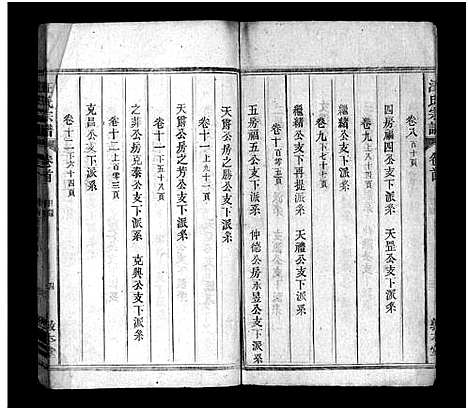 卷八 百十頁
四房福四公支下派系 天罡公支下派系
卷九 上八十四頁
繼緒公支下派系
卷九 下七十七頁
繼緒公支下再提派系 天禮公支下派系
卷十 百零五頁
五房福五公支下派系 仲德公房永昱公支下派系
卷十一 上九十一頁
天爵公房之勝公支下派系
卷十一 下五十八頁
天爵公房之芳公支下派系
卷十二 上百零三頁
之菲公房克泰公支下派系 克興公支下派系
卷十二 下六十四頁
克昌公支下派系
氏宗譜
卷首